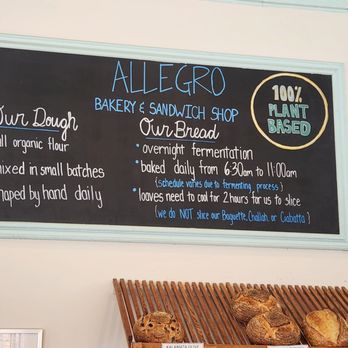 ALLEGRO
BAKERY & SANDWICH SHOP
100%
PLANT
BASED
Our Dough
all organic flour
mixed in small batches
shaped by hand daily
Our Bread
• overnight fermentation
• baked daily from 6:30am to 11:00am
(schedule varies due to fermenting process)
• loaves need to cool for 2 hours for us to slice
(we do NOT slice our Baguette, Challah, or Ciabatta)